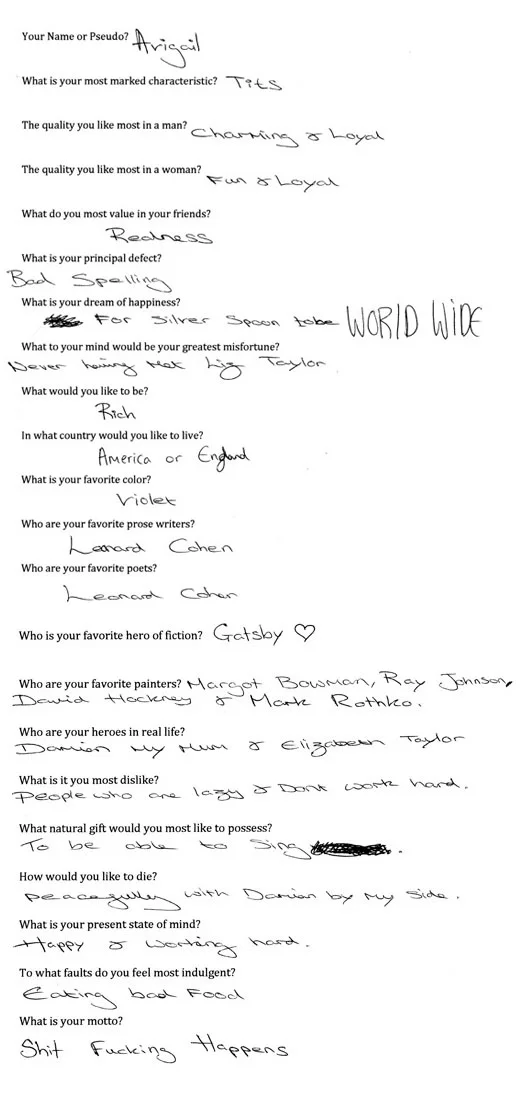 Your Name or Pseudo? Avigail
What is your most marked characteristic? Tits
The quality you like most in a man? Charming & Loyal
The quality you like most in a woman? Fun & Loyal
What do you most value in your friends?
Realness
What is your principal defect?
Bad Spelling
What is your dream of happiness?
For Silver Spoon to be WORLD WIDE
What to your mind would be your greatest misfortune?
Never having Met Liz Taylor
What would you like to be?
Rich
In what country would you like to live?
America or England
What is your favorite color?
Violet
Who are your favorite prose writers?
Leonard Cohen
Who are your favorite poets?
Leonard Cohen
Who is your favorite hero of fiction? Gatsby ♡
Who are your favorite painters? Margot Bowman, Ray Johnson,
David Hockney & Mark Rothko.
Who are your heroes in real life?
Damian My Mum & Elizabeth Taylor
What is it you most dislike?
People who are lazy & Dont work hard.
What natural gift would you most like to possess?
To be able to Sing .
How would you like to die?
peacefully with Damian by My Side.
What is your present state of mind?
Happy & Working hard.
To what faults do you feel most indulgent?
Eating bad Food
What is your motto?
Shit Fucking Happens